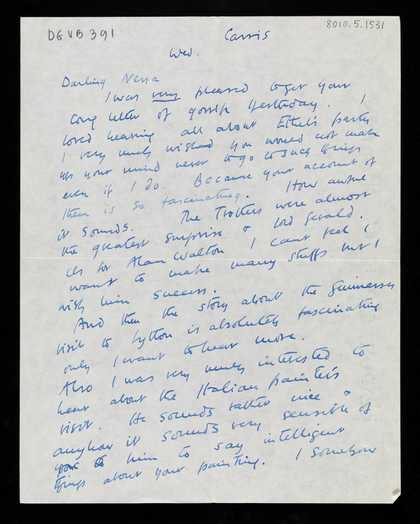 DG VB 391
8010.5.1531
Cassis
Wed.
Darling Nessa
I was very pleased to get your
long letter of gossip yesterday. I
loved hearing all about Ethel's party
I very much wished you would not make
up your mind never to go to such things
even if I do. Because your account of
them is so fascinating. How awful
it sounds. The Trotters were almost
the greatest surprise & Lord Gerald.
As for Alan Walton I can't feel I
want to make many stuffs but I
wish him success.
And then the story about the Guinnesses
visit to Lytton is absolutely fascinating
only I want to hear more.
Also I was very much interested to
hear about the Italian painter's
visit. He sounds rather nice &
anyhow it sounds very sensible of
him to say intelligent
things about your painting. I somehow